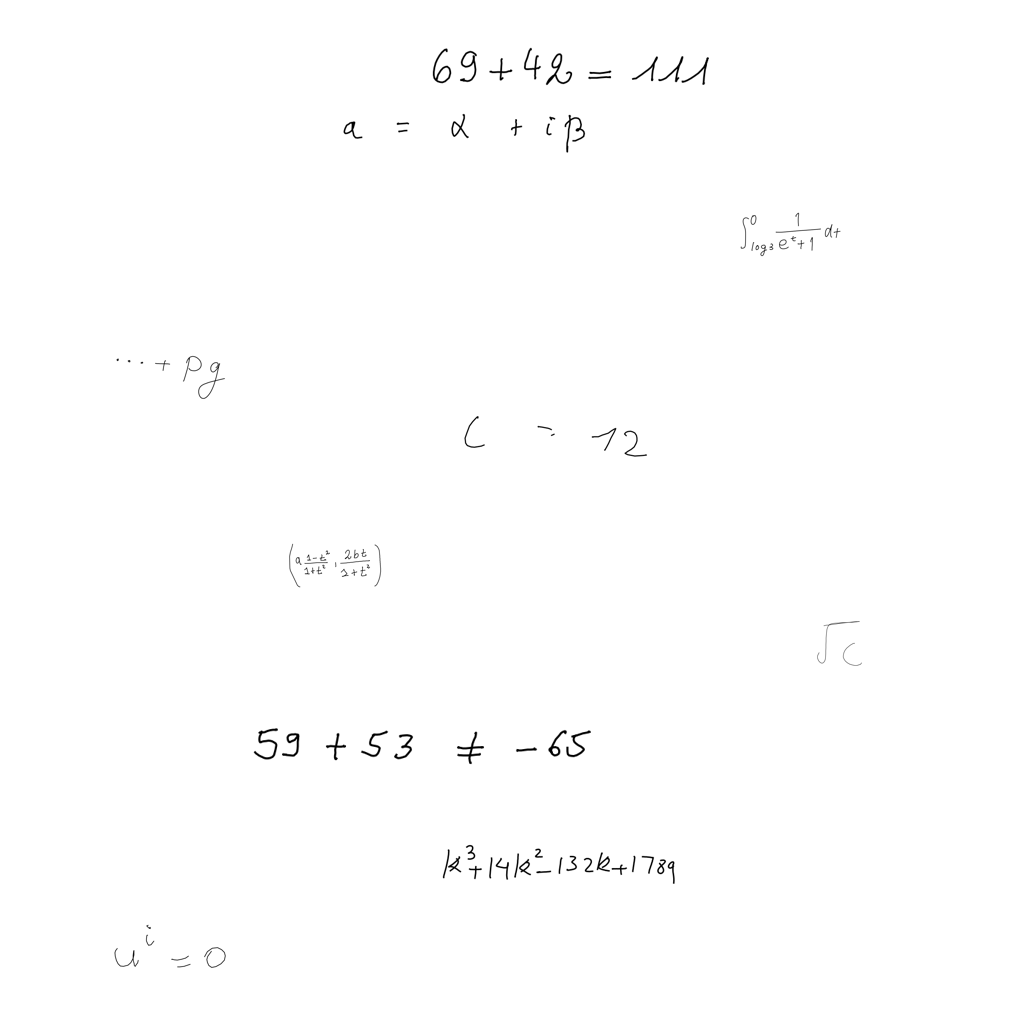 69 + 42 = 111
a = α + iβ
\int_{\log 3}^{0} \frac{1}{e^{t}+1} dt
\cdots + pg
C = 12
\left( a \frac{1-t^{2}}{1+t^{2}}, \frac{2bt}{1+t^{2}} \right)
\sqrt{c}
59 + 53 ≠ -65
k^{3}+14k^{2}-132k+1789
u^{i} = 0